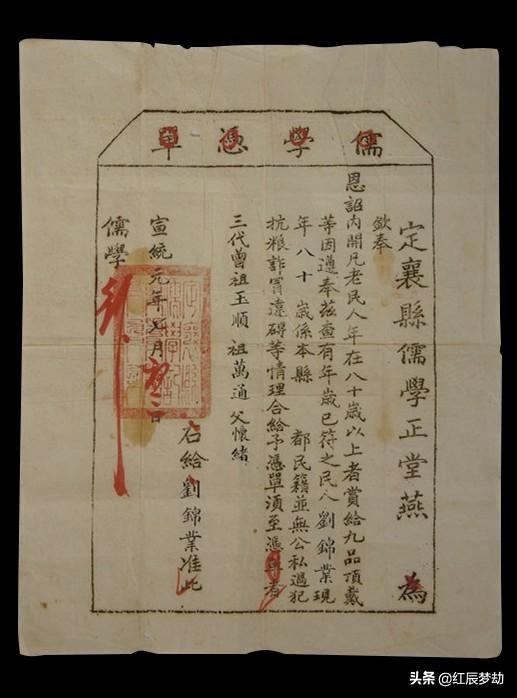 儒學憑單
定襄縣儒學正堂燕 為
欽奉
恩詔內開凡老民人年在八十歲以上者賞給九品頂戴
等因遵奉茲查有年歲已符之民人劉錦業現
年八十歲係本縣 都民籍並無公私過犯
抗粮詐冒違碍等情理合給予憑單須至憑單者
三代曾祖玉順 祖萬通 父懷緒
右給劉錦業准此
宣統元年 月初二日
儒學
头条 @红辰梦劫